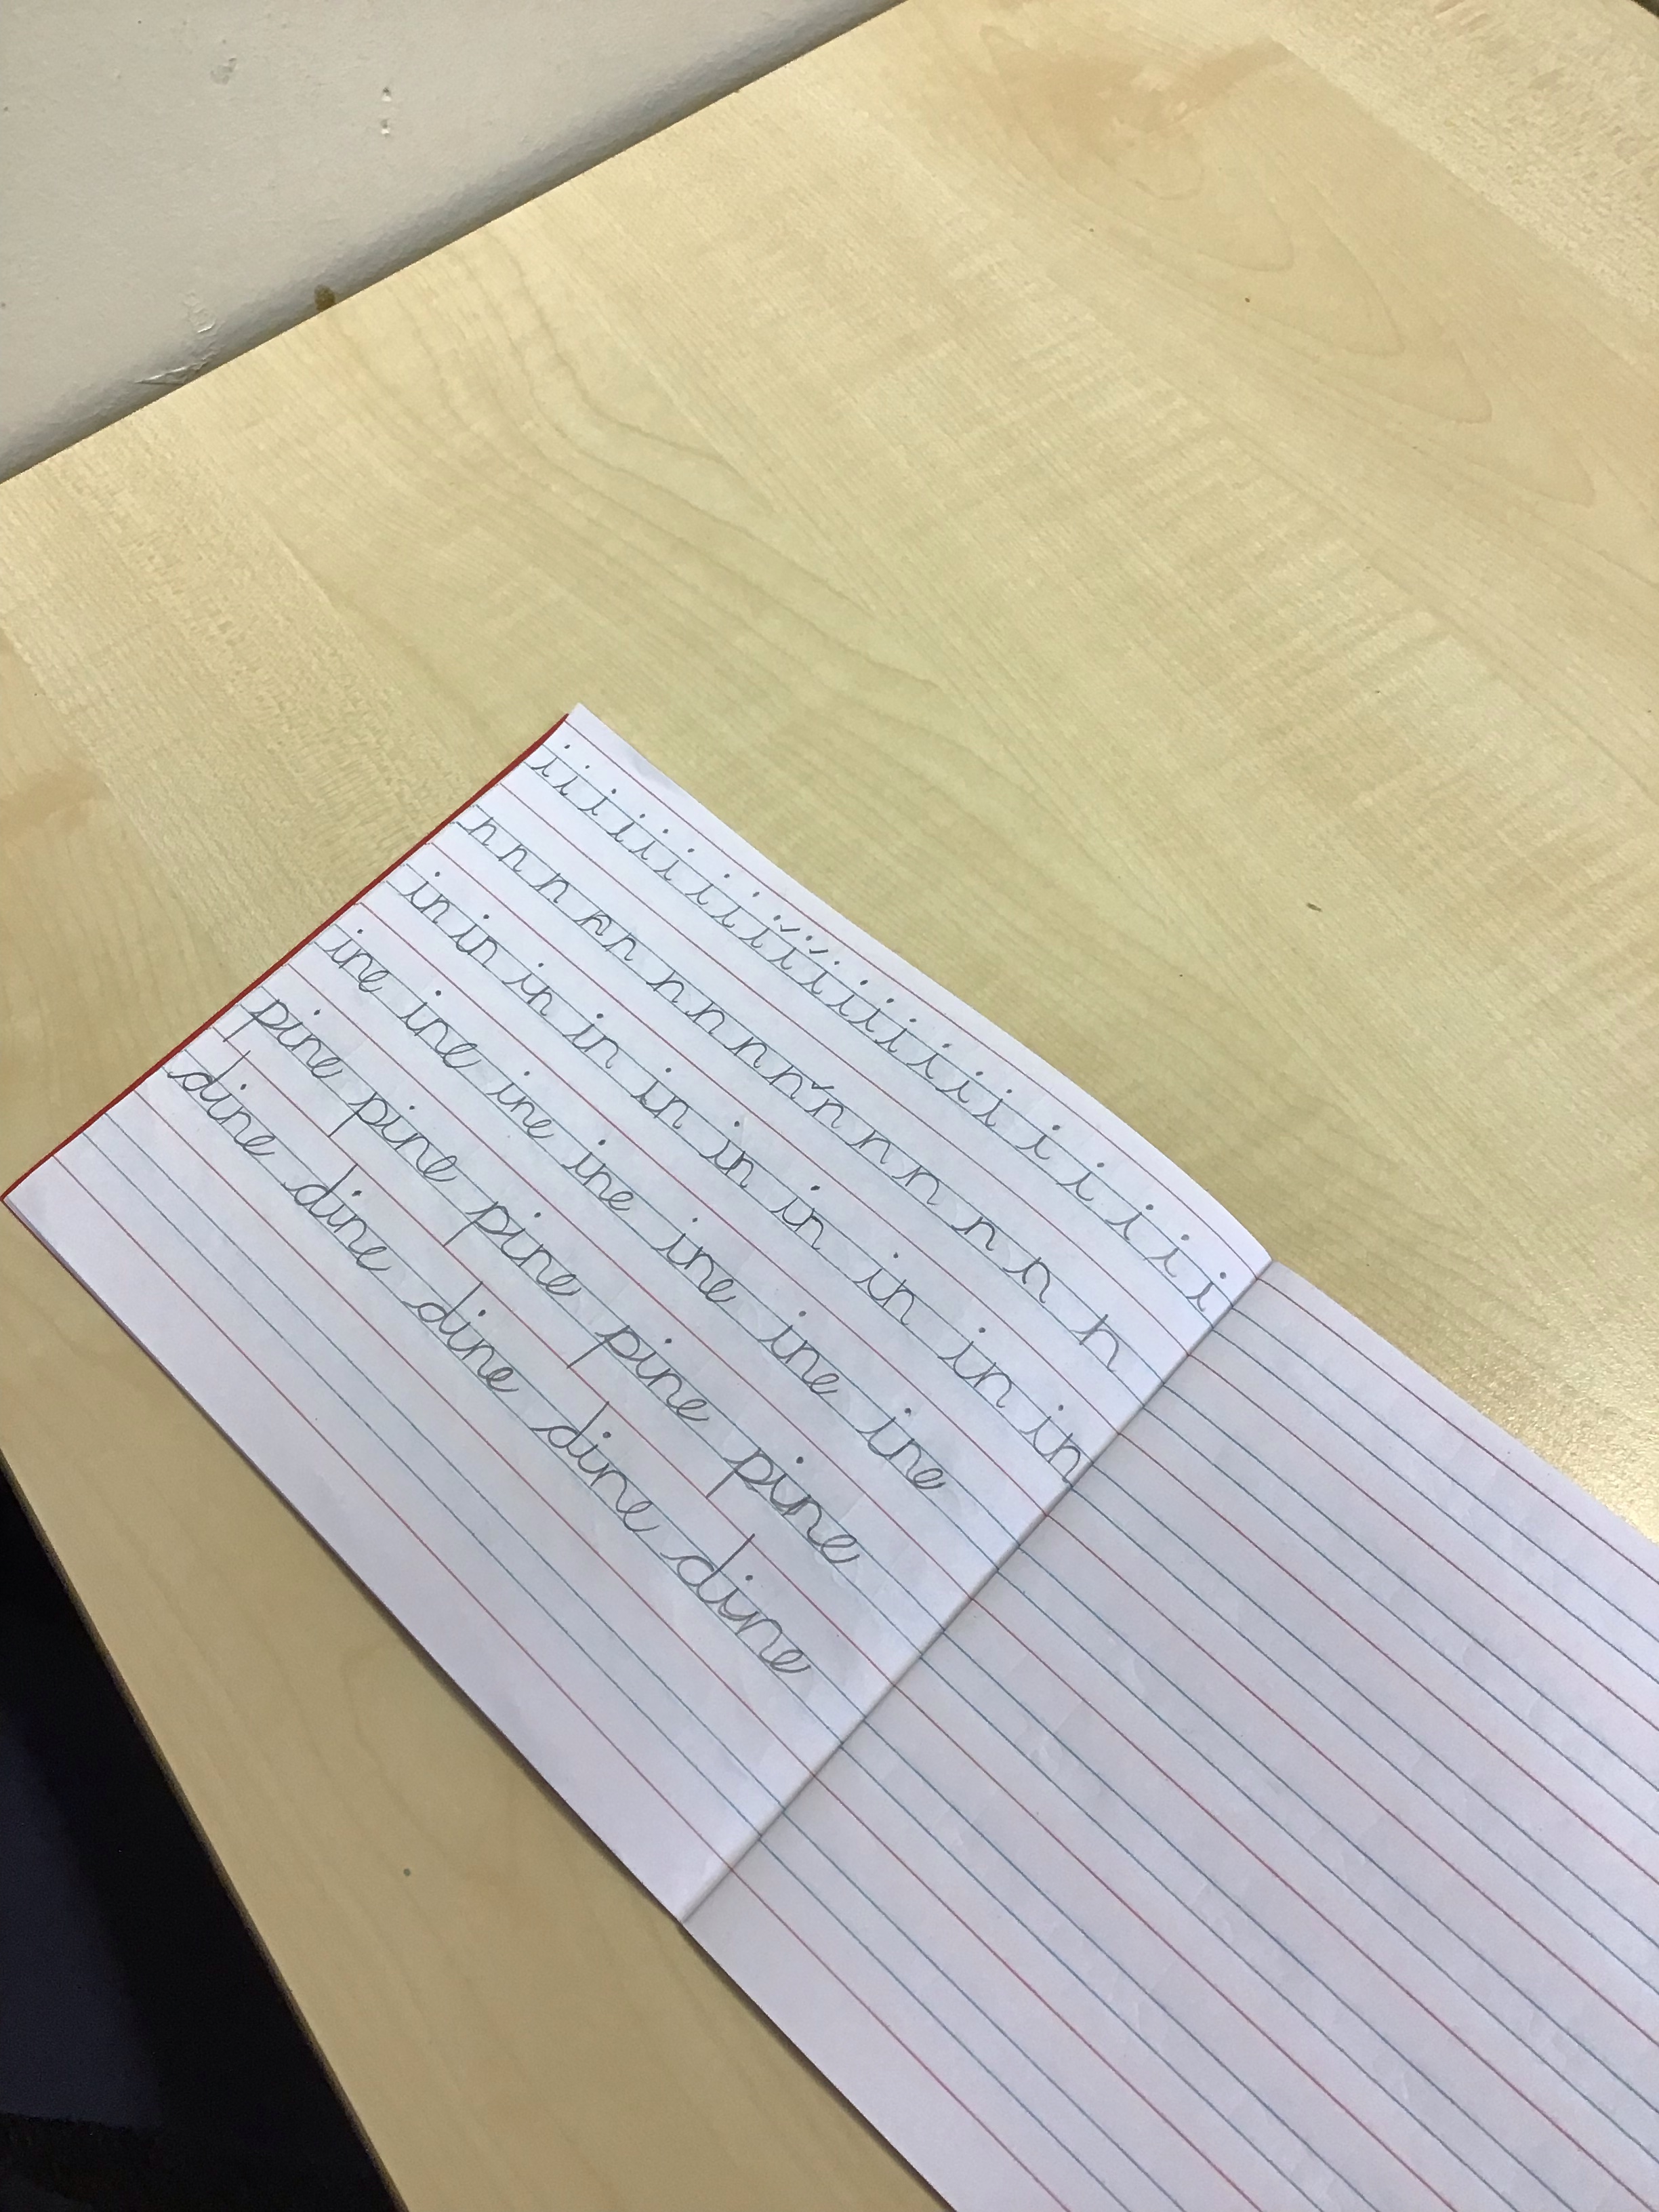 i i i i i i i i i i i i i i i i i i i i i i
n n n n n n n n n n n n n n n
in in in in in in in in in in
ine ine ine ine ine ine ine
pine pine pine pine pine
dine dine dine dine dine